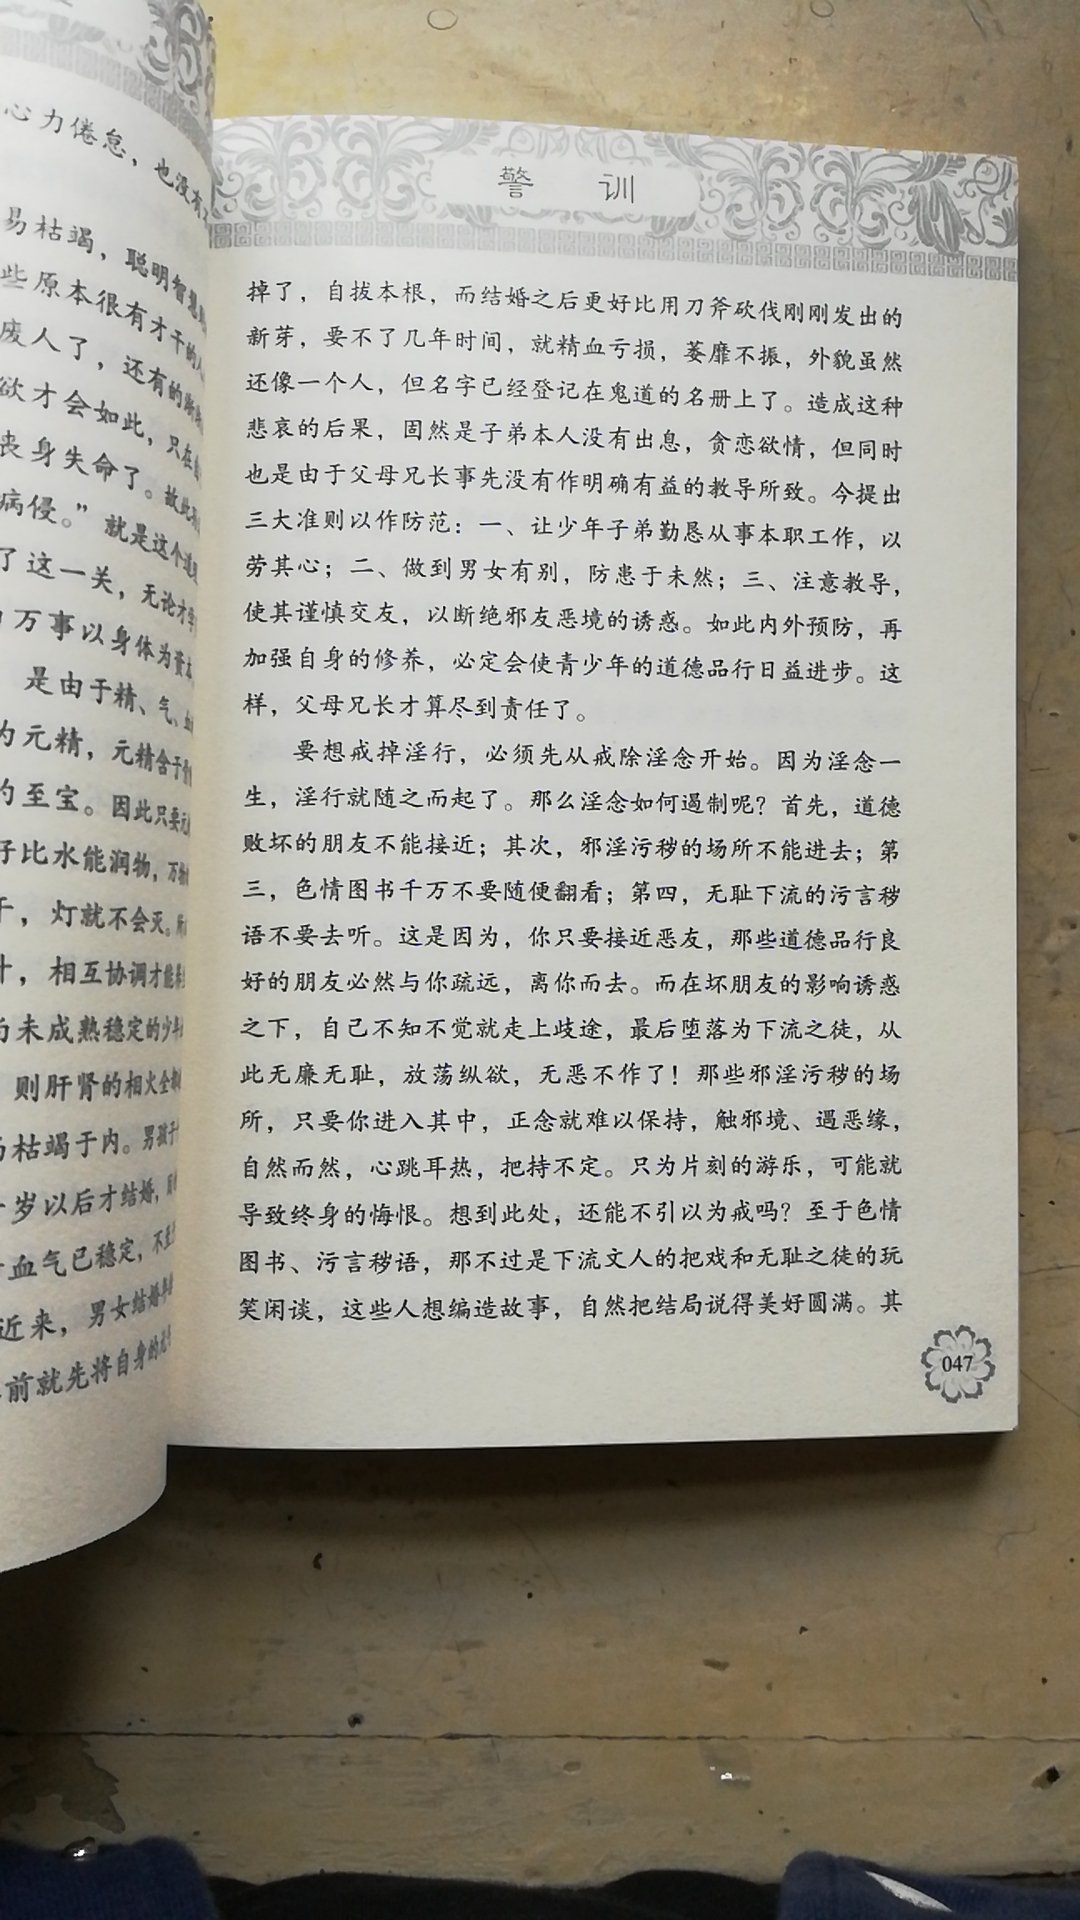 心力倦怠，也没有
易枯竭，聪明智慧
些原本很有才干的人
废人了，还有的
欲才会如此，只在
丧身失命了。故此
病侵。”就是这个道理
了这一关，无论才学
万事以身体为资本
是由于精、气、血
为元精，元精含于骨
的至宝。因此只要元
好比水能润物，万物
干，灯就不会灭。所
叶，相互协调才能
尚未成熟稳定的少年
则肝肾的相火全
枯竭于内。男孩子
十岁以后才结婚，
血气已稳定，不至
近来，男女结婚年龄
前就先将自身的
警 训
掉了，自拔本根，而结婚之后更好比用刀斧砍伐刚刚发出的
新芽，要不了几年时间，就精血亏损，萎靡不振，外貌虽然
还像一个人，但名字已经登记在鬼道的名册上了。造成这种
悲哀的后果，固然是子弟本人没有出息，贪恋欲情，但同时
也是由于父母兄长事先没有作明确有益的教导所致。今提出
三大准则以作防范：一、让少年子弟勤恳从事本职工作，以
劳其心；二、做到男女有别，防患于未然；三、注意教导，
使其谨慎交友，以断绝邪友恶境的诱惑。如此内外预防，再
加强自身的修养，必定会使青少年的道德品行日益进步。这
样，父母兄长才算尽到责任了。
要想戒掉淫行，必须先从戒除淫念开始。因为淫念一
生，淫行就随之而起了。那么淫念如何遏制呢？首先，道德
败坏的朋友不能接近；其次，邪淫污秽的场所不能进去；第
三，色情图书千万不要随便翻看；第四，无耻下流的污言秽
语不要去听。这是因为，你只要接近恶友，那些道德品行良
好的朋友必然与你疏远，离你而去。而在坏朋友的影响诱惑
之下，自己不知不觉就走上歧途，最后堕落为下流之徒，从
此无廉无耻，放荡纵欲，无恶不作了！那些邪淫污秽的场
所，只要你进入其中，正念就难以保持，触邪境、遇恶缘，
自然而然，心跳耳热，把持不定。只为片刻的游乐，可能就
导致终身的悔恨。想到此处，还能不引以为戒吗？至于色情
图书、污言秽语，那不过是下流文人的把戏和无耻之徒的玩
笑闲谈，这些人想编造故事，自然把结局说得美好圆满。其
047